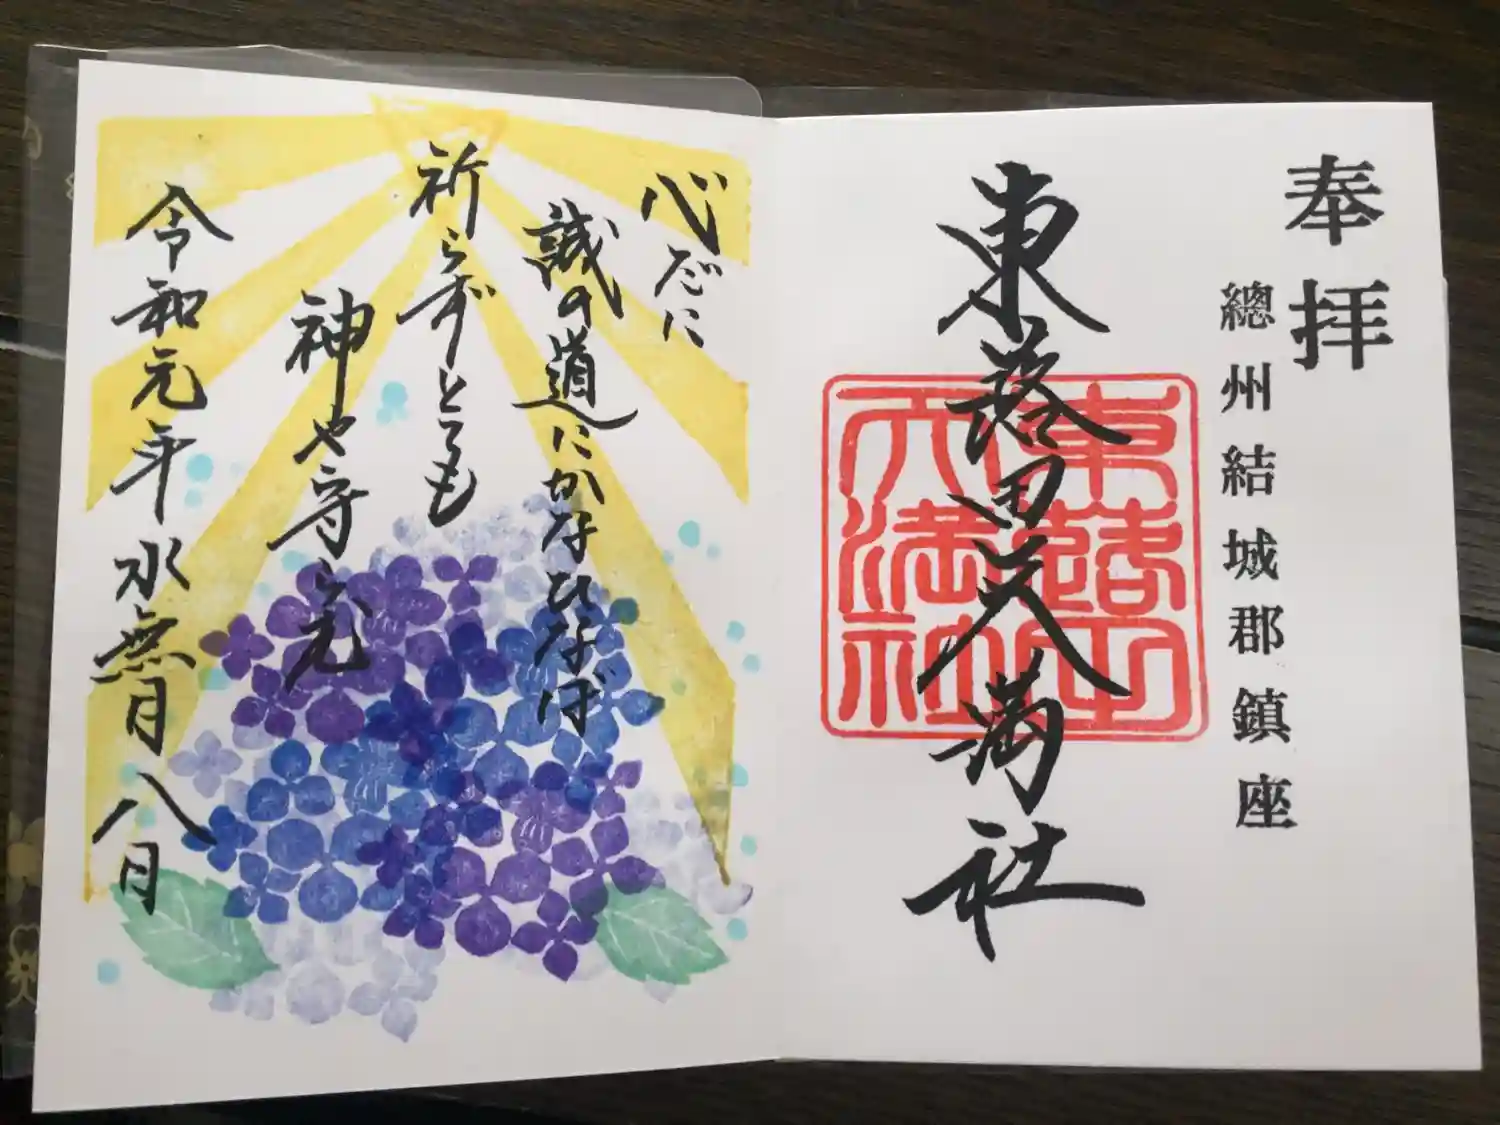 奉拝
總州結城郡鎮座
東蕗田天満社
東蕗田
天満社
心だに
誠の道にかなひなば
祈らずとても
神や守らむ
令和元年水無月八日